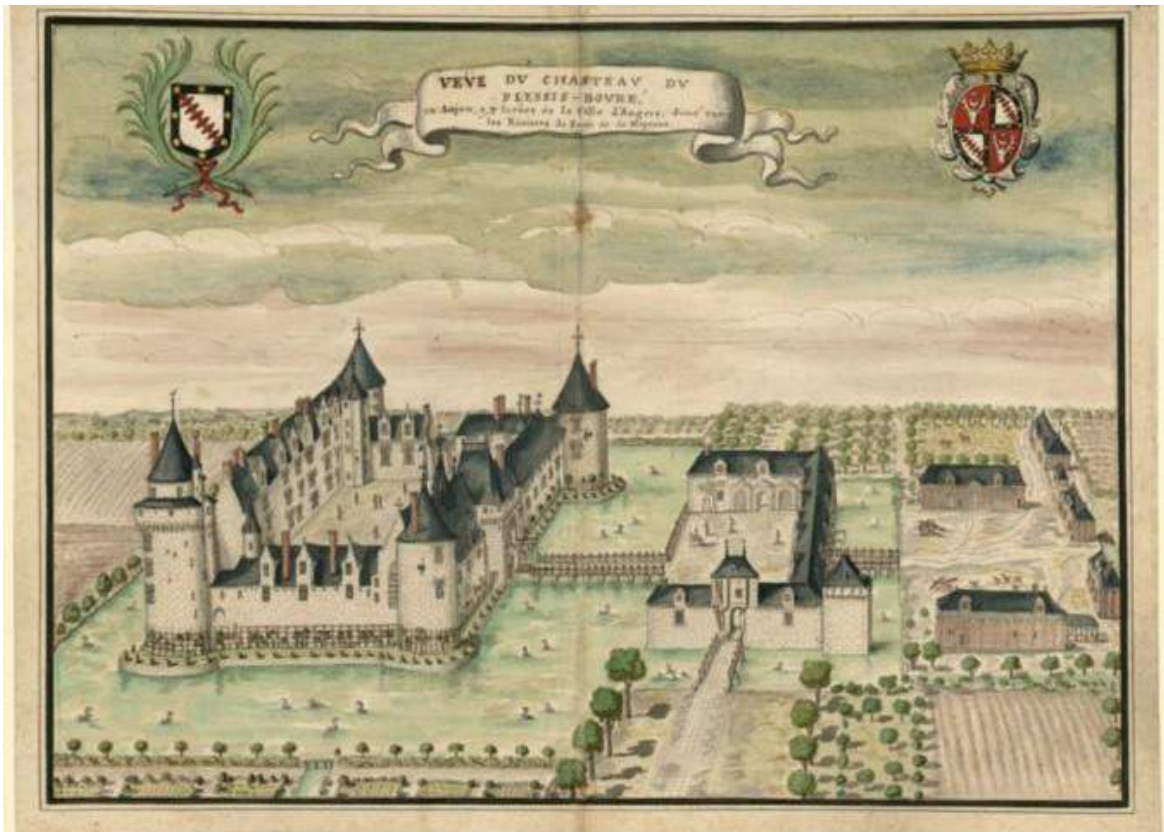 VEVE DV CHASTEAV DV
PLESSIS-BOVRE,
en Anjou, a 3 lieües de la Ville d'Angers, Scitué entre
les Rivieres de Sarte et de Mayenne